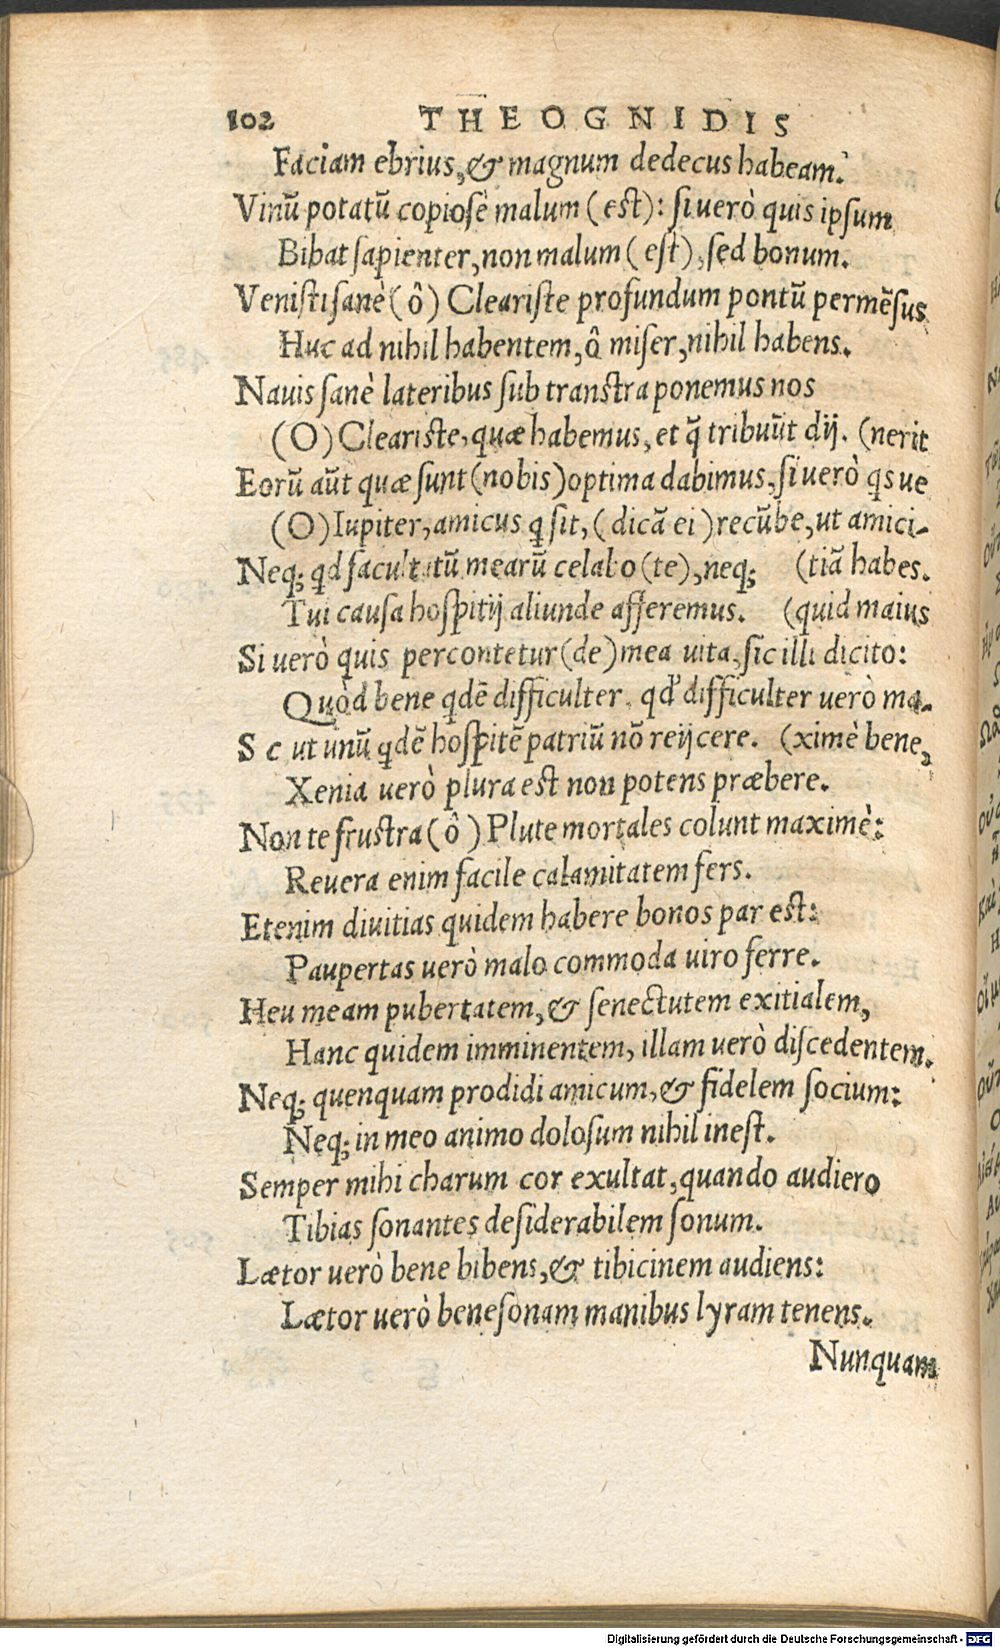 102 THEOGNIDIS
Faciam ebrius, & magnum dedecus habeam.
Vinū potatū copiosè malum (est): si uerò quis ipsum
Bibat sapienter, non malum (est), sed bonum.
Venisti sanè (ô) Cleariste profundum pontū permēsus
Huc ad nihil habentem, ô miser, nihil habens.
Nauis sanè lateribus sub transtra ponemus nos
(O) Cleariste, quæ habemus, et q̄ tribuūt dij. (nerit
Eorū aūt quæ sunt (nobis) optima dabimus, si uerò qs ue
(O) Iupiter, amicus q sit, (dicā ei) recūbe, ut amici-
Neq; qd facultatū mearū celabo (te), neq; (tiā habes.
Tui causa hospitij aliunde afferemus. (quid maius
Si uerò quis percontetur (de) mea uita, sic illi dicito:
Quòd bene qdē difficulter, qd' difficulter uerò ma-
S c ut unū qdē hospitē patriū nō reijcere. (ximè bene,
Xenia uerò plura est non potens præbere.
Non te frustra (ô) Plute mortales colunt maximè:
Reuera enim facile calamitatem fers.
Etenim diuitias quidem habere bonos par est:
Paupertas uerò malo commoda uiro ferre.
Heu meam pubertatem, & senectutem exitialem,
Hanc quidem imminentem, illam uerò discedentem.
Neq; quenquam prodidi amicum, & fidelem socium:
Neq; in meo animo dolosum nihil inest.
Semper mihi charum cor exultat, quando audiero
Tibias sonantes desiderabilem sonum.
Lætor uerò bene bibens, & tibicinem audiens:
Lætor uerò benesonam manibus lyram tenens.
Nunquam
Digitalisierung gefördert durch die Deutsche Forschungsgemeinschaft - DFG